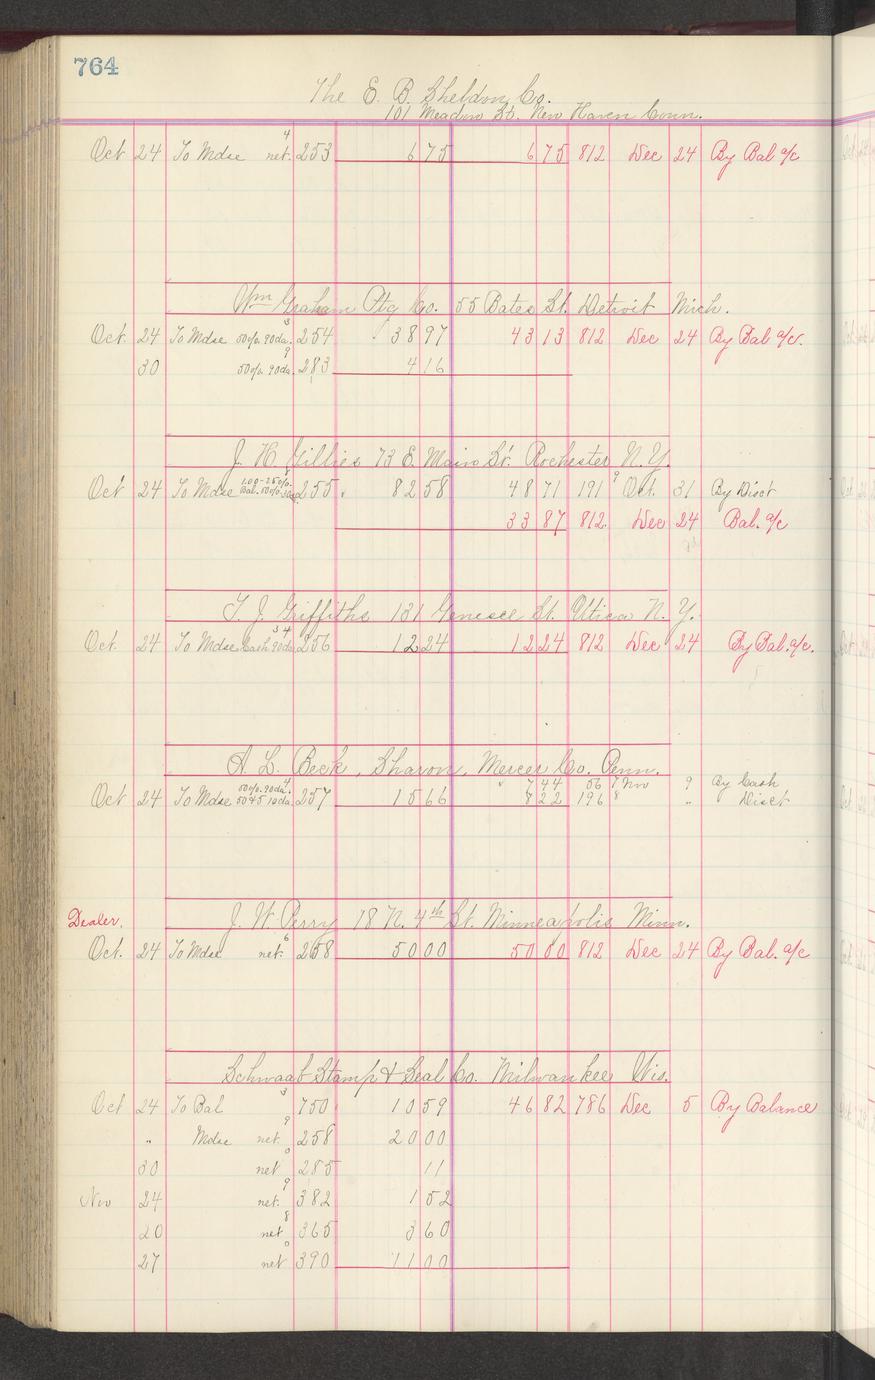 764
The E. B. Sheldon Co.
101 Meadow St. New Haven Conn.
4
Oct 24 To Mdse net. 253 6 75 6 75 812 Dec 24 By Bal a/c
Wm Graham Ptg Co. 55 Bates St. Detroit Mich.
3
Oct. 24 To Mdse 50% 90da. 254 38 97 43 13 812 Dec 24 By Bal a/c.
9
30 50% 90da. 283 4 16
J. H. Gillies 73 E. Main St. Rochester N.Y.
8
Oct 24 To Mdse 100-25% Bal. 50% 30da. 255 82 58 48 71 191 9 Oct. 31 By Disct
33 87 812. Dec 24 Bal. a/c
T. J. Griffiths 131 Genesee St. Utica N. Y.
3 4
Oct. 24 To Mdse Cash 90da. 256 12 24 12 24 812 Dec 24 By Bal. a/c.
A. L. Beck, Sharon, Mercer Co. Penn.
4
7 44 56 7 Nov 9 By Cash
Oct 24 To Mdse 50% 90da. 50&5 10da. 257 15 66 8 22 196 8 " Disct
Dealer. J. W. Perry 18 N. 4th St. Minneapolis Minn.
6
Oct. 24 To Mdse net. 258 50 00 50 00 812 Dec 24 By Bal. a/c
Schwaab Stamp & Seal Co. Milwaukee Wis.
3
Oct 24 To Bal 750 10 59 46 82 786 Dec 5 By Balance
9
" Mdse net. 258 20 00
0
30 net 285 11
9
Nov 24 net. 382 1 52
8
20 net 365 3 60
0
27 net 390 11 00